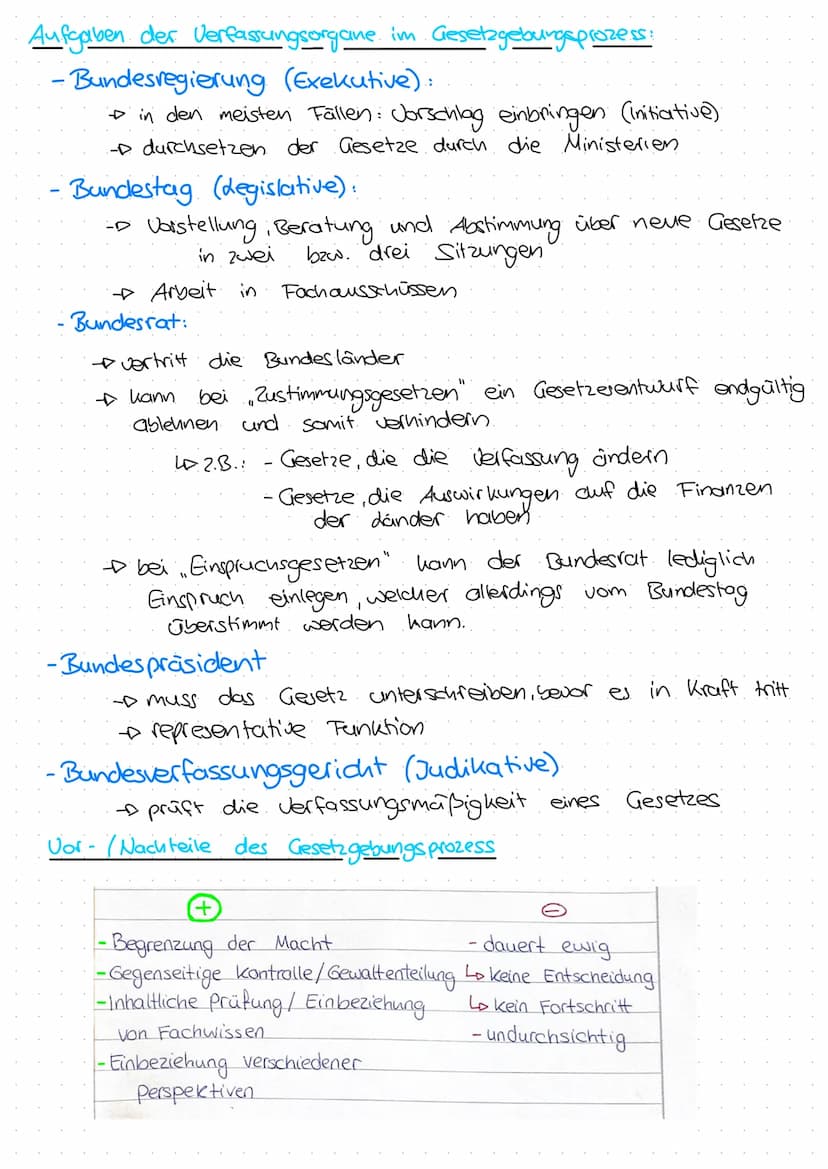 Aufgaben der Verfassungsorgane im Gesetzgebungsprozess:
- Bundesregierung (Exekutive):
→ in den meisten Fällen: Vorschlag einbringen (Initiative)
→ durchsetzen der Gesetze durch die Ministerien
- Bundestag (Legislative):
→ Vorstellung, Beratung und Abstimmung über neue Gesetze
in zwei bzw. drei Sitzungen
→ Arbeit in Fachausschüssen
- Bundesrat:
→ vertritt die Bundesländer
→ kann bei „Zustimmungsgesetzen" ein Gesetzesentwurf endgültig
ablehnen und somit verhindern
↳ z.B.: - Gesetze, die die Verfassung ändern
- Gesetze, die Auswirkungen auf die Finanzen
der Länder haben
→ bei „Einspruchsgesetzen" kann der Bundesrat lediglich
Einspruch einlegen, welcher allerdings vom Bundestag
überstimmt werden kann.
- Bundespräsident
→ muss das Gesetz unterschreiben, bevor es in Kraft tritt
→ representative Funktion
- Bundesverfassungsgericht (Judikative)
→ prüft die Verfassungsmäßigkeit eines Gesetzes
Vor- / Nachteile des Gesetzgebungsprozess
+
- Begrenzung der Macht
- Gegenseitige Kontrolle / Gewaltenteilung
- Inhaltliche Prüfung / Einbeziehung
von Fachwissen
- Einbeziehung verschiedener
Perspektiven
-
- dauert ewig
↳ keine Entscheidung
↳ kein Fortschritt
- undurchsichtig